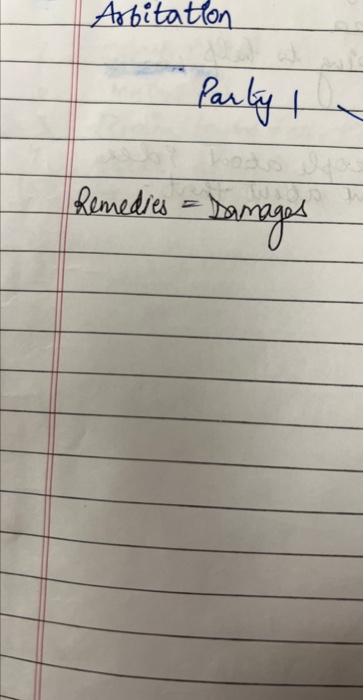 Arbitation
Party 1
Remedies = Damages